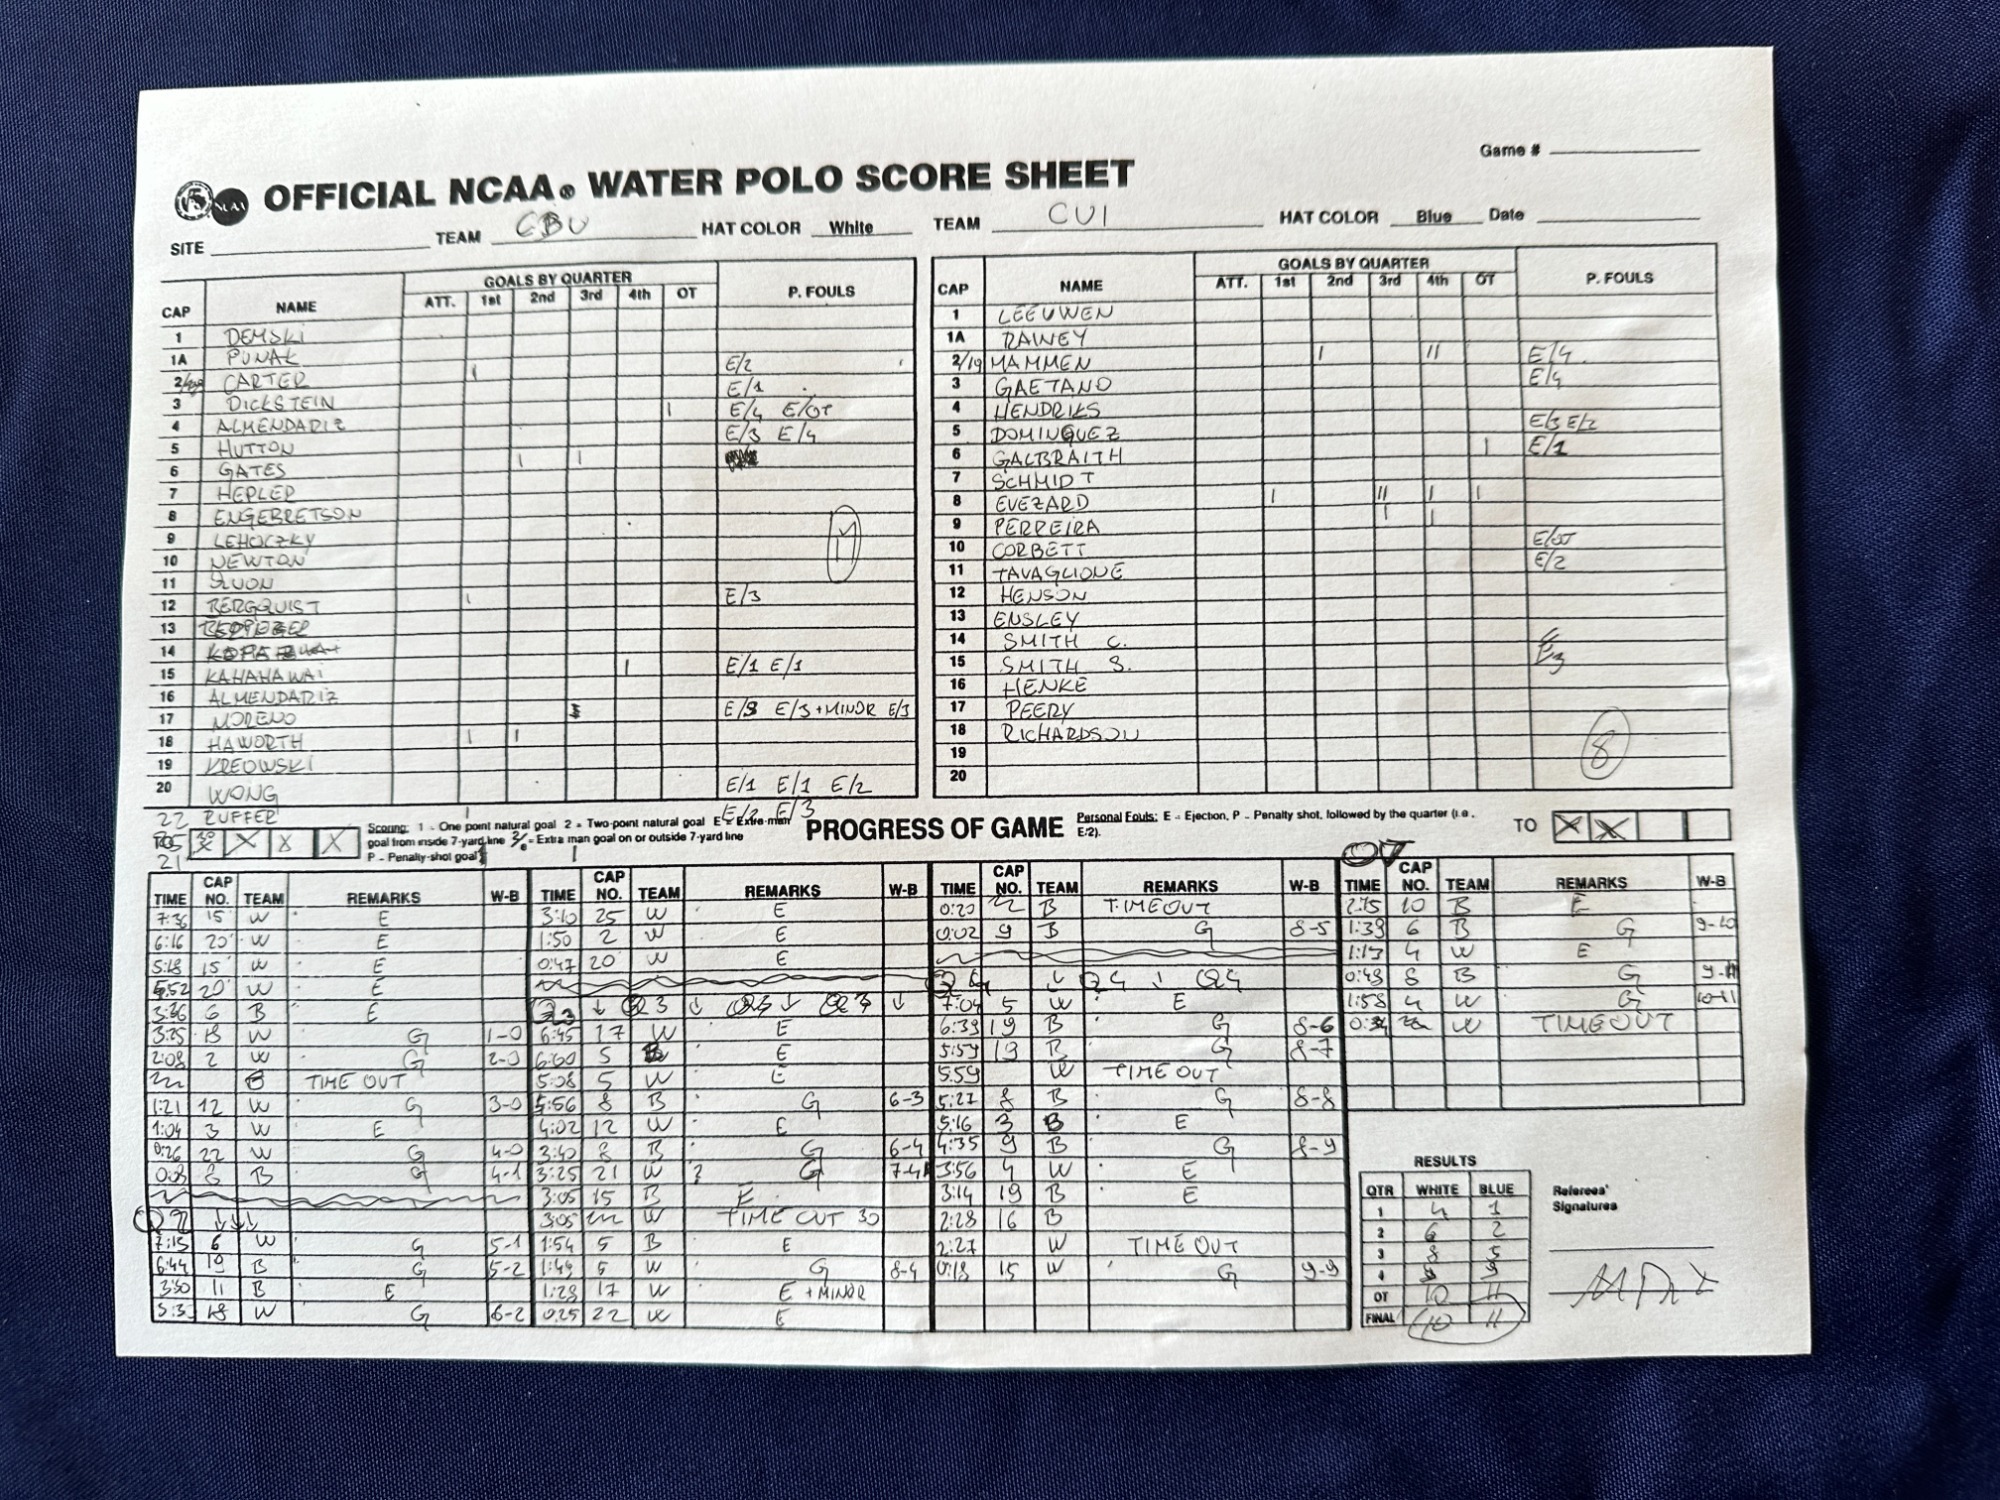 Game #
OFFICIAL NCAA® WATER POLO SCORE SHEET
SITE TEAM CBU HAT COLOR White TEAM CUI HAT COLOR Blue Date
CAP NAME GOALS BY QUARTER P. FOULS
ATT. 1st 2nd 3rd 4th OT
1 DEMSKI
1A PUNAK E/2
2 CARTER I E/1
3 DICKSTEIN I E/4 E/OT
4 ALMENDARIZ E/3 E/4
5 HUTTON
6 GATES I I
7 HEPLER
8 ENGEBRETSON
9 LEHOCZKY
10 NEWTON
11
12 BERGQUIST I E/3
13
14
15 KAHAHAWAI I E/1 E/1
16 ALMENDARIZ
17 MORENO E/3 E/3+MINOR E/3
18 HAWORTH I I
19 KREOWSKI
20 WONG E/1 E/1 E/2
22 RUFFER I E/2 E/3
21 I
17
CAP NAME GOALS BY QUARTER P. FOULS
ATT. 1st 2nd 3rd 4th OT
1 LEEUWEN
1A RAINEY
2/19 MAMMEN I II E/4
3 GAETANO E/4
4 HENDRIKS
5 DOMINGUEZ E/3 E/2
6 GALBRAITH I E/1
7 SCHMIDT
8 EVEZARD I II I I
9 PERREIRA I I
10 CORBETT E/OT
11 TAVAGLIONE E/2
12 HENSON
13 ENSLEY
14 SMITH C.
15 SMITH S. E3
16 HENKE
17 PEERY
18 RICHARDSON
19
20
8
X X X
Scoring: 1 - One point natural goal 2 = Two-point natural goal E = Extra-man
goal from inside 7-yard line 2/E = Extra man goal on or outside 7-yard line
P - Penalty-shot goal
PROGRESS OF GAME
Personal Fouls: E - Ejection, P - Penalty shot, followed by the quarter (i.e.
E/2).
TO X X
TIME CAP NO. TEAM REMARKS W-B
7:36 15 W E
6:16 20 W E
5:18 15 W E
5:52 20 W E
3:36 6 B E
3:25 18 W G 1-0
2:08 2 W G 2-0
B TIME OUT
1:21 12 W G 3-0
1:04 3 W E
0:26 22 W G 4-0
0:03 8 B G 4-1
Q2 ↓↓↓
7:15 6 W G 5-1
6:44 19 B G 5-2
3:50 11 B E
18 W G 6-2
TIME CAP NO. TEAM REMARKS W-B
3:10 25 W E
1:50 2 W E
0:47 20 W E
Q3 ↓ Q3 ↓ Q3 ↓ Q3 ↓
6:45 17 W E
6:00 5 B E
5:08 5 W E
5:56 8 B G 6-3
4:02 12 W E
3:40 8 B G 6-4
3:25 21 W G 7-4
3:05 15 B E
3:05 W TIME OUT 30
1:54 5 B E
1:49 6 W G 8-4
1:28 17 W E + MINOR
0:25 22 W E
TIME CAP NO. TEAM REMARKS W-B
0:20 B TIMEOUT
0:02 9 B G 8-5
Q4 ↓ Q4 ↓ Q4
7:04 5 W E
6:39 19 B G 8-6
5:59 19 B G 8-7
5:59 W TIME OUT
5:27 8 B G 8-8
5:16 3 B E
4:35 9 B G 8-9
3:56 4 W E
3:14 19 B E
2:28 16 B
2:27 W TIME OUT
0:18 15 W G 9-9
OT
TIME CAP NO. TEAM REMARKS W-B
2:15 10 B E
1:39 6 B G 9-10
1:13 4 W E
0:49 8 B G 9-11
1:58 4 W G 10-11
W TIMEOUT
RESULTS
QTR WHITE BLUE
1 4 1
2 6 2
3 8 5
4 9 9
OT 10 11
FINAL 10 11
Referees'
Signatures